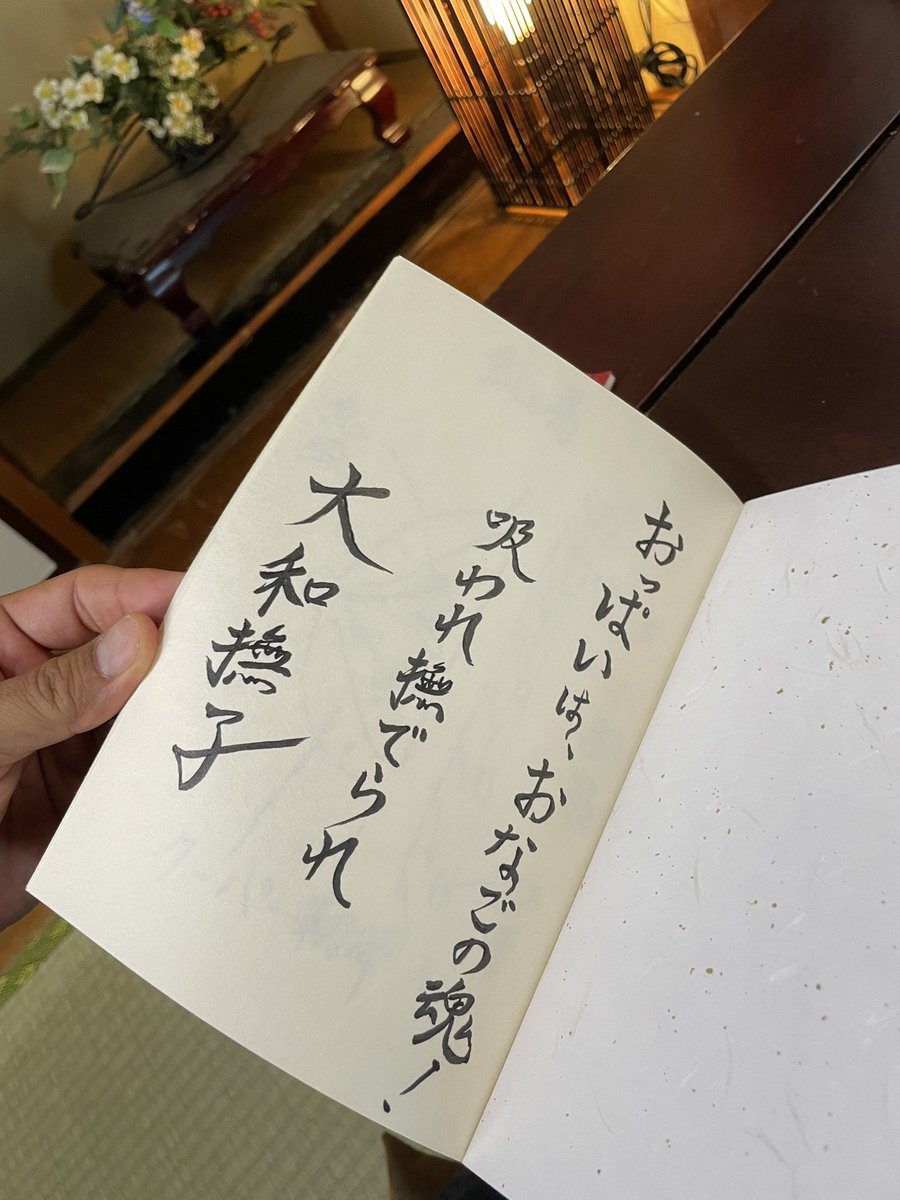 おっぱいは、おなごの魂！
吸われ撫でられ
大和撫子